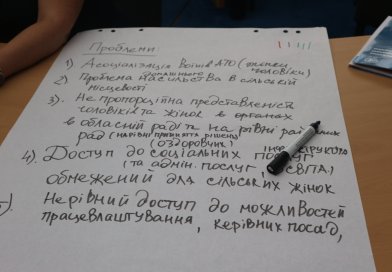 Проблеми
1) Асоціалізація воїнів АТО (жінки
чоловіки)
2) Проблема домашнього насильства в сільській
місцевості
3). Не пропорційна представленість
чоловіків та жінок в органах
в обласній раді та на рівні
рад (на рівні прийняття рішень)
(оздоровчих)
4). Доступ до соціальних послуг
(та адмін. послуг, освіта)
обмежений для сільських жінок
Нерівний доступ до можливостей
працевлаштування, керівних посад,